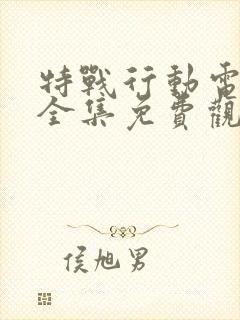 特戰行動電
全集免費觀
侯旭男